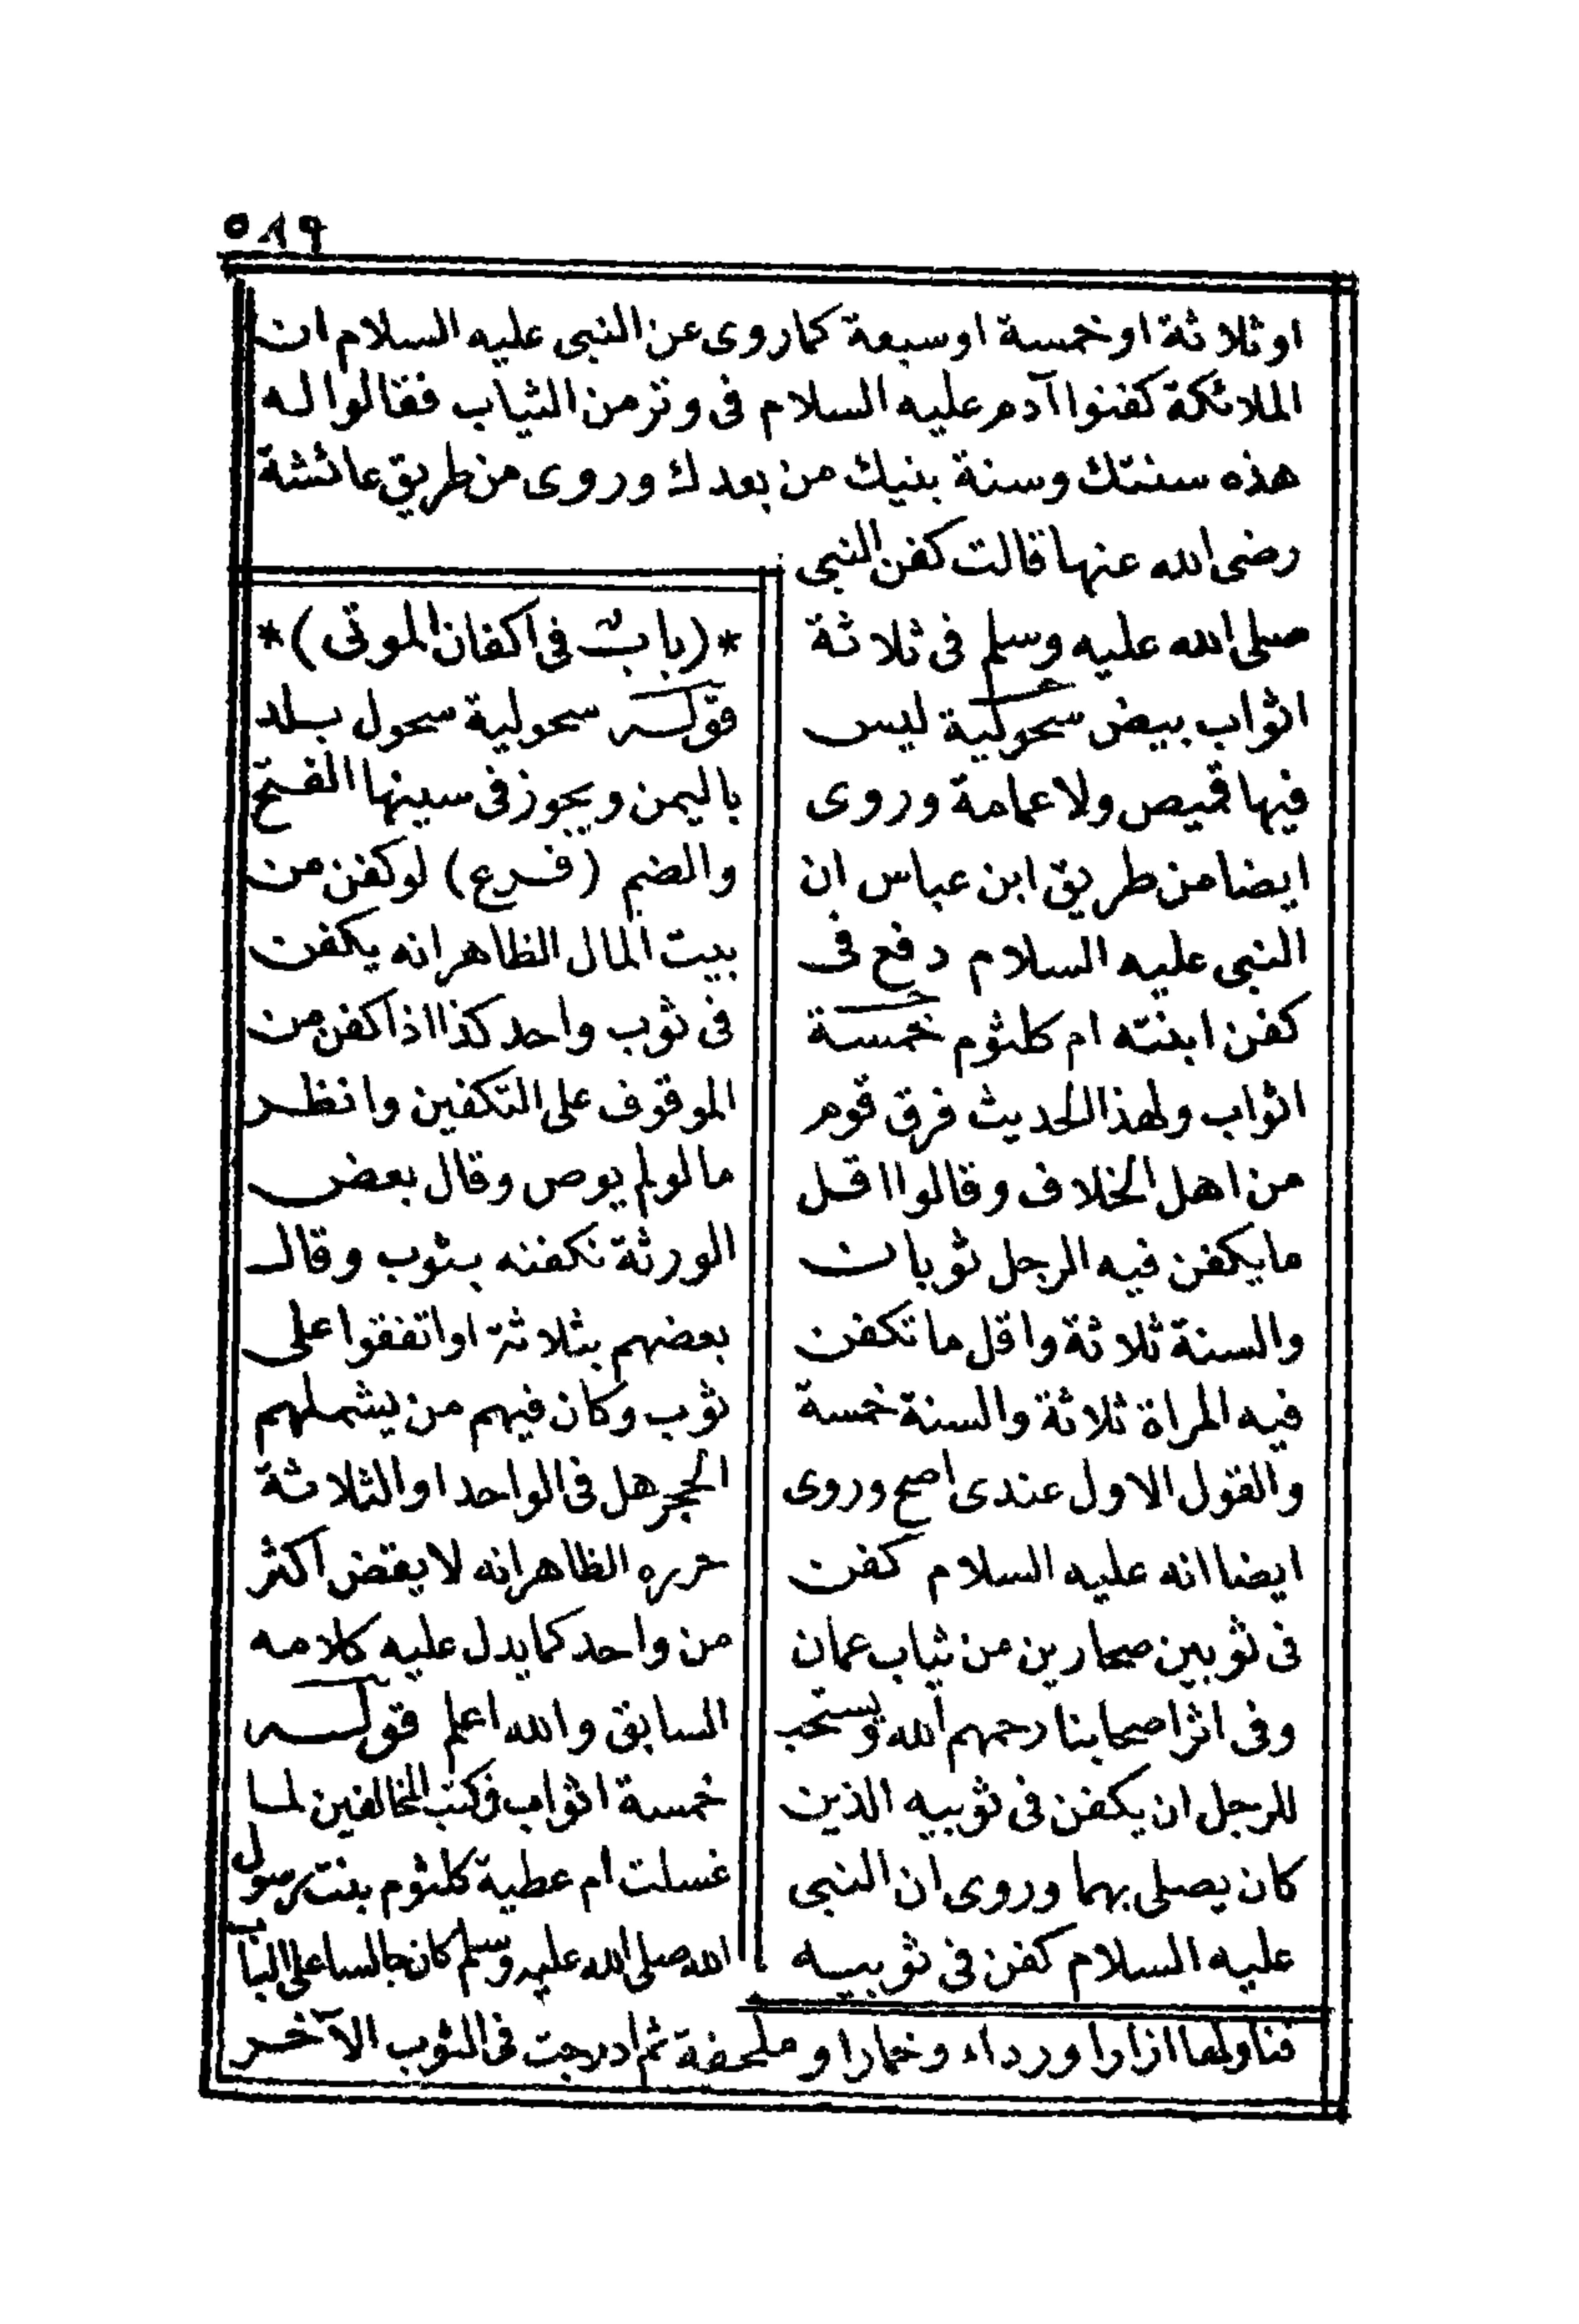 ٥٨٩
او ثلاثة او خمسة او سبعة كما روى عن النبى عليه السلام ان
الملائكة كفنوا آدم عليه السلام فى وتر من الثياب فقالوا له
هذه سنتك وسنة بنيك من بعدك وروى من طريق عائشة
رضى الله عنها قالت كفن النبى
صلى الله عليه وسلم فى ثلاثة
اثواب بيض سحولية ليس
فيها قميص ولا عمامة وروى
ايضا من طريق ابن عباس ان
النبى عليه السلام دفع فى
كفن ابنته ام كلثوم خمسة
اثواب ولهذا الحديث فرق قوم
من اهل الخلاف وقالوا اقل
ما يكفن فيه الرجل ثوبان
والسنة ثلاثة واقل ما تكفن
فيه المراة ثلاثة والسنة خمسة
والقول الاول عندى اصح وروى
ايضا انه عليه السلام كفن
فى ثوبين صحارين من ثياب عمان
وفى اثر اصحابنا رحمهم الله ويستحب
للرجل ان يكفن فى ثوبيه الذين
كان يصلى بهما وروى ان النبى
عليه السلام كفن فى ثوبيه
*(باب فى اكفان الموتى)*
قوله سحولية سحول بلد
باليمن ويجوز فى سينها الفتح
والضم (فرع) لو كفن من
بيت المال الظاهر انه يكفن
فى ثوب واحد كذا اذا كفن من
الموقوف على التكفين وانظر
ما لو لم يوص وقال بعض
الورثة نكفنه بثوب وقال
بعضهم بثلاثة او اتفقوا على
ثوب وكان فيهم من يشملهم
الحجر هل فى الواحد او الثلاثة
حرره الظاهر انه لا يقض اكثر
من واحد كما يدل عليه كلامه
السابق والله اعلم قوله
خمسة اثواب فى كتب المخالفين لما
غسلت ام عطية كلثوم بنت رسول
الله صلى الله عليه وسلم كان جالسا على الباب
فناولها ازارا ورداء وخمارا وملحفة ثم ادرجت فى الثوب الآخر